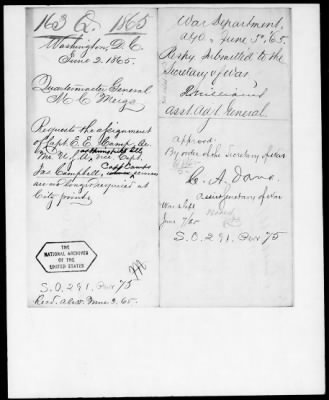 163 Q. 1865
Washington, D.C.
June 2. 1865.
Quartermaster General
M. C. Meigs
Requests the assignment
of Capt. E. E. Camp, to
vice Capt.
Jas Campbell, Capt Camps services
are no longer required at
City point.
THE
NATIONAL ARCHIVES
OF THE
UNITED STATES
S.O. 291. Par 75
Recd. A.G.O. June 3. 65.
War Department,
AGO. June 5th, 65.
Respy. Submitted to the
Secretary of War
Asst. Adjt. General
Approved:
By order of the Secretary of War
C. A. Dana.
Asst Secretary of War
War Dept
June 7/65
S.O. 291. Par 75